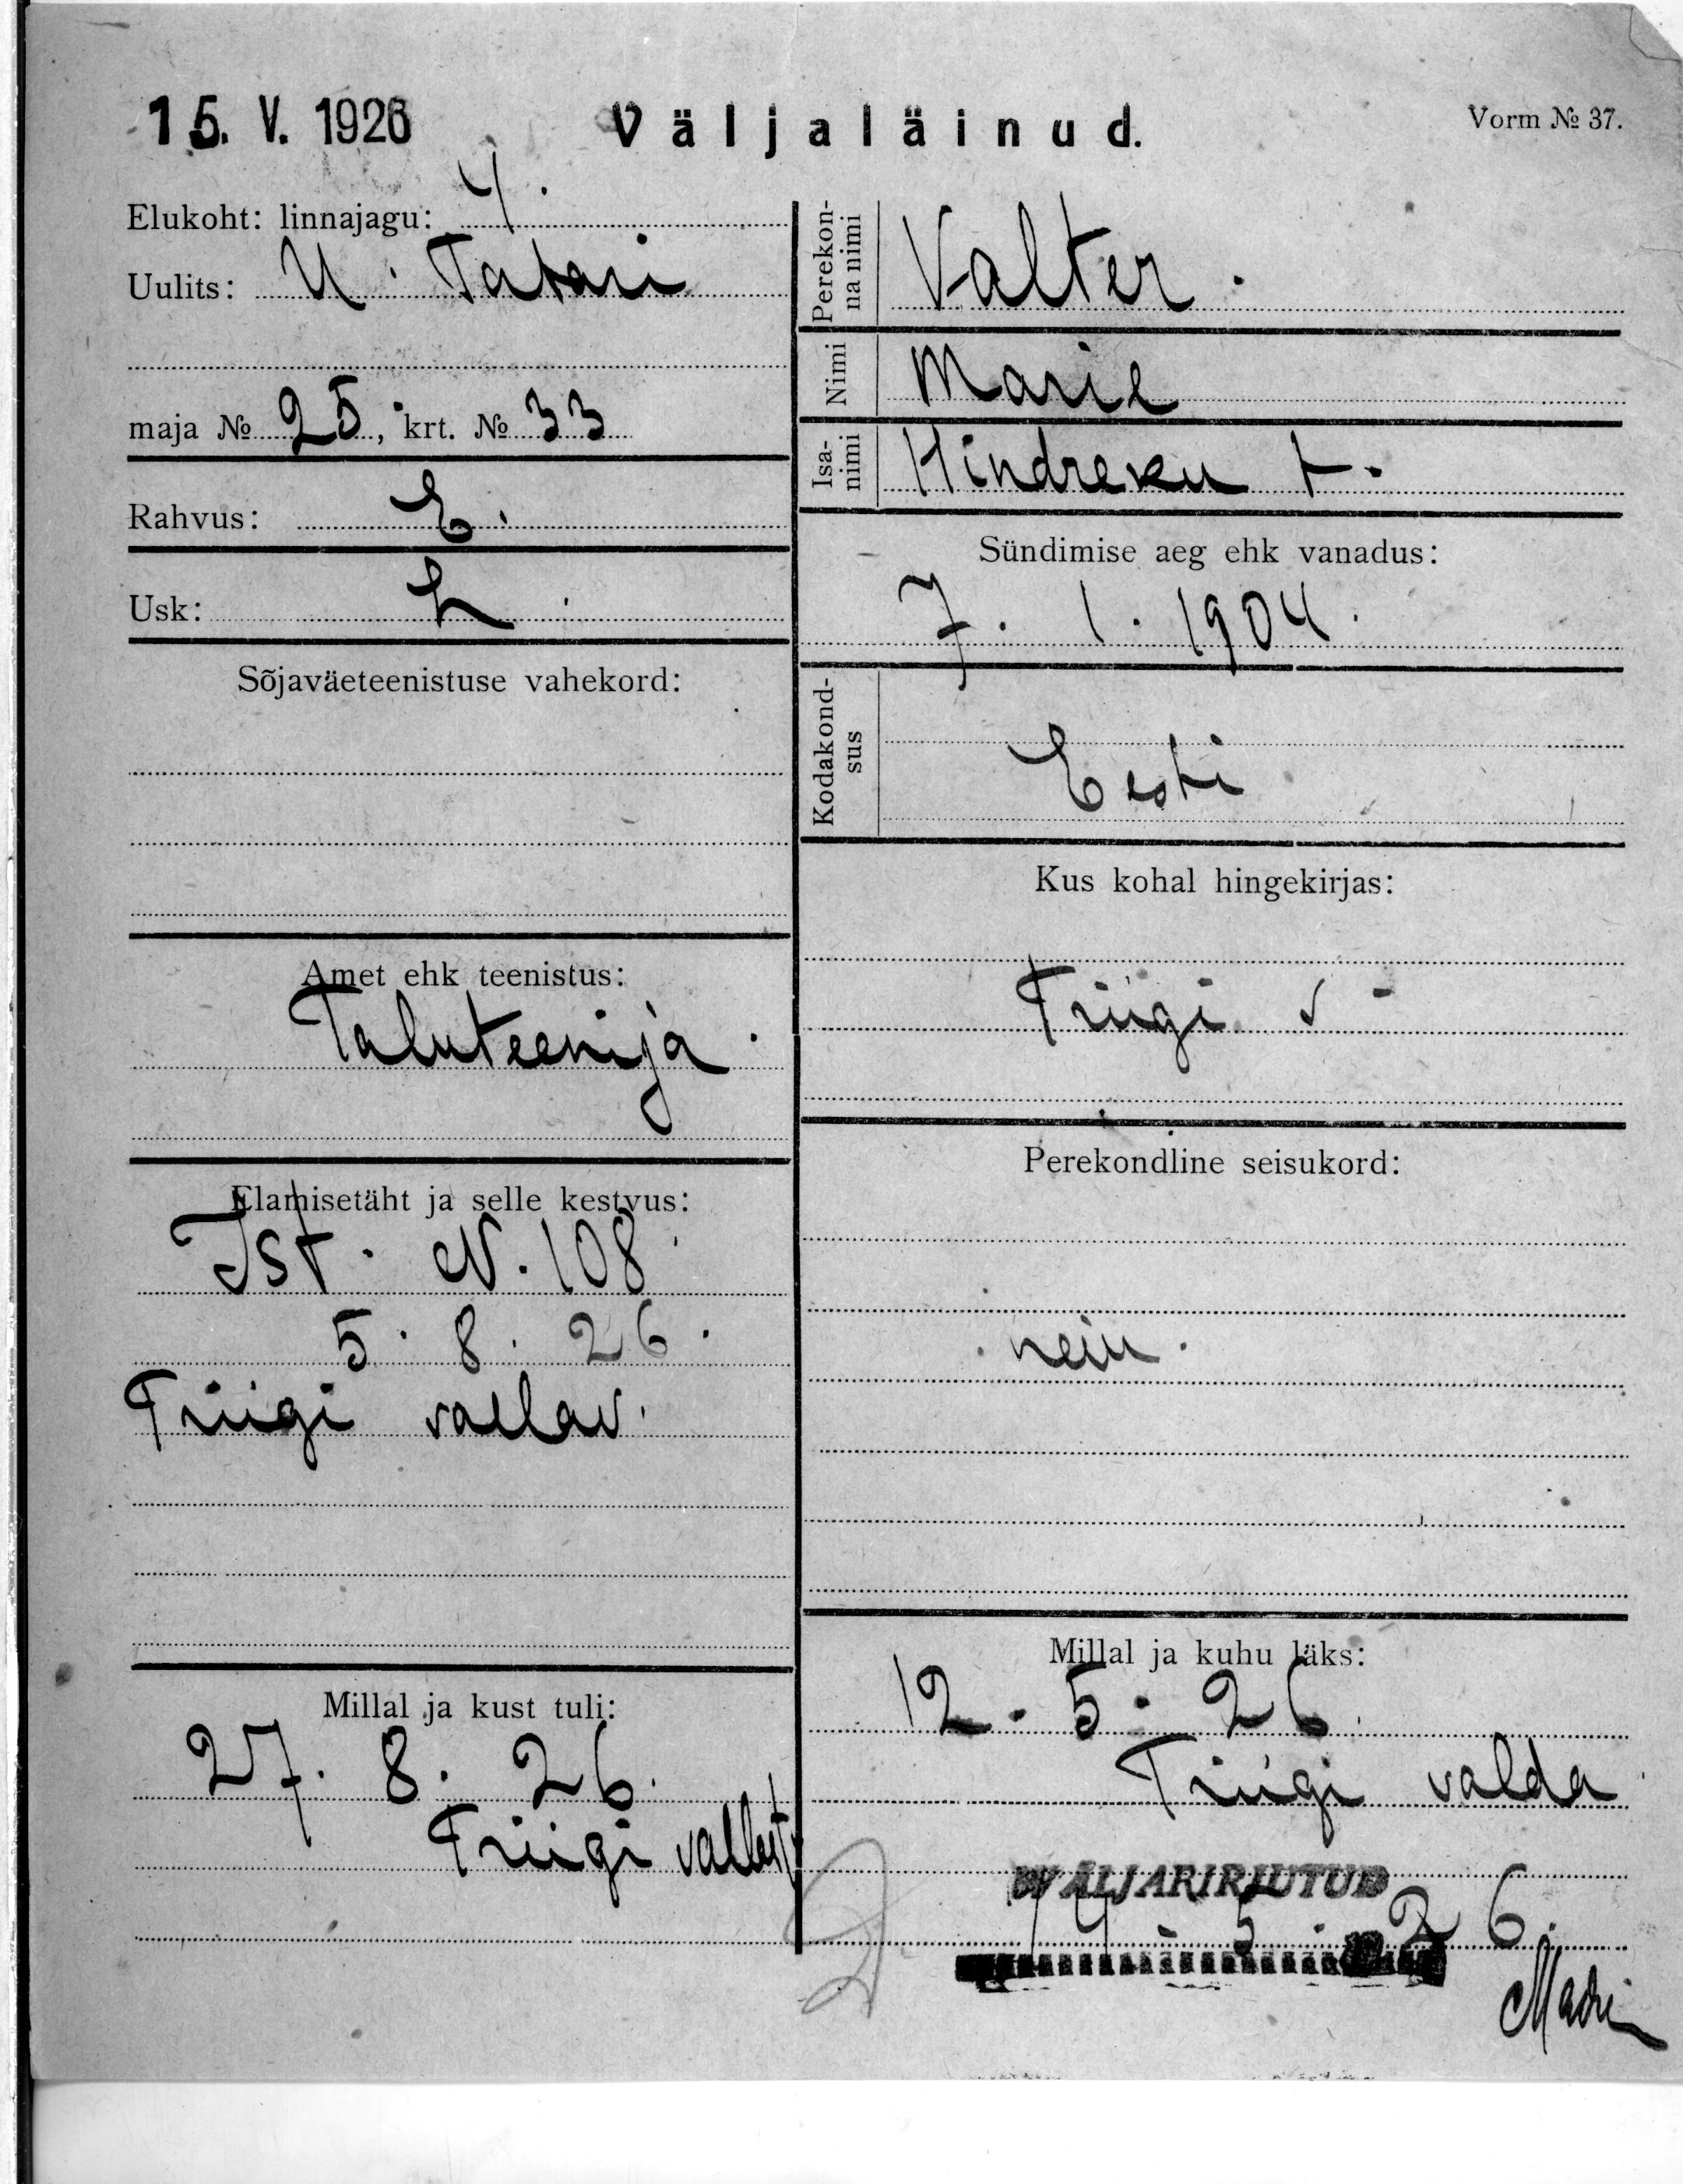 15. V. 1926
Väljaläinud.
Vorm № 37.
Elukoht: linnajagu: 4.
Uulits: U. Tatari
maja № 25, krt. № 33
Rahvus: E.
Usk: L.
Sõjaväeteenistuse vahekord:
Amet ehk teenistus:
Taluteenija.
Elamisetäht ja selle kestvus:
Ist. N. 108.
5. 8. 26.
Triigi vallav.
Millal ja kust tuli:
27. 8. 26.
Triigi vallast
Perekonna nimi
Valter.
Nimi
Marie
Isa-nimi
Hindreku t.
Sündimise aeg ehk vanadus:
7. 1. 1904.
Kodakond-sus
Eesti
Kus kohal hingekirjas:
Triigi v
Perekondline seisukord:
neiu.
Millal ja kuhu läks:
12. 5. 26.
Triigi valda
VÄLJAKIRJUTUD
14 - 5 - 26.